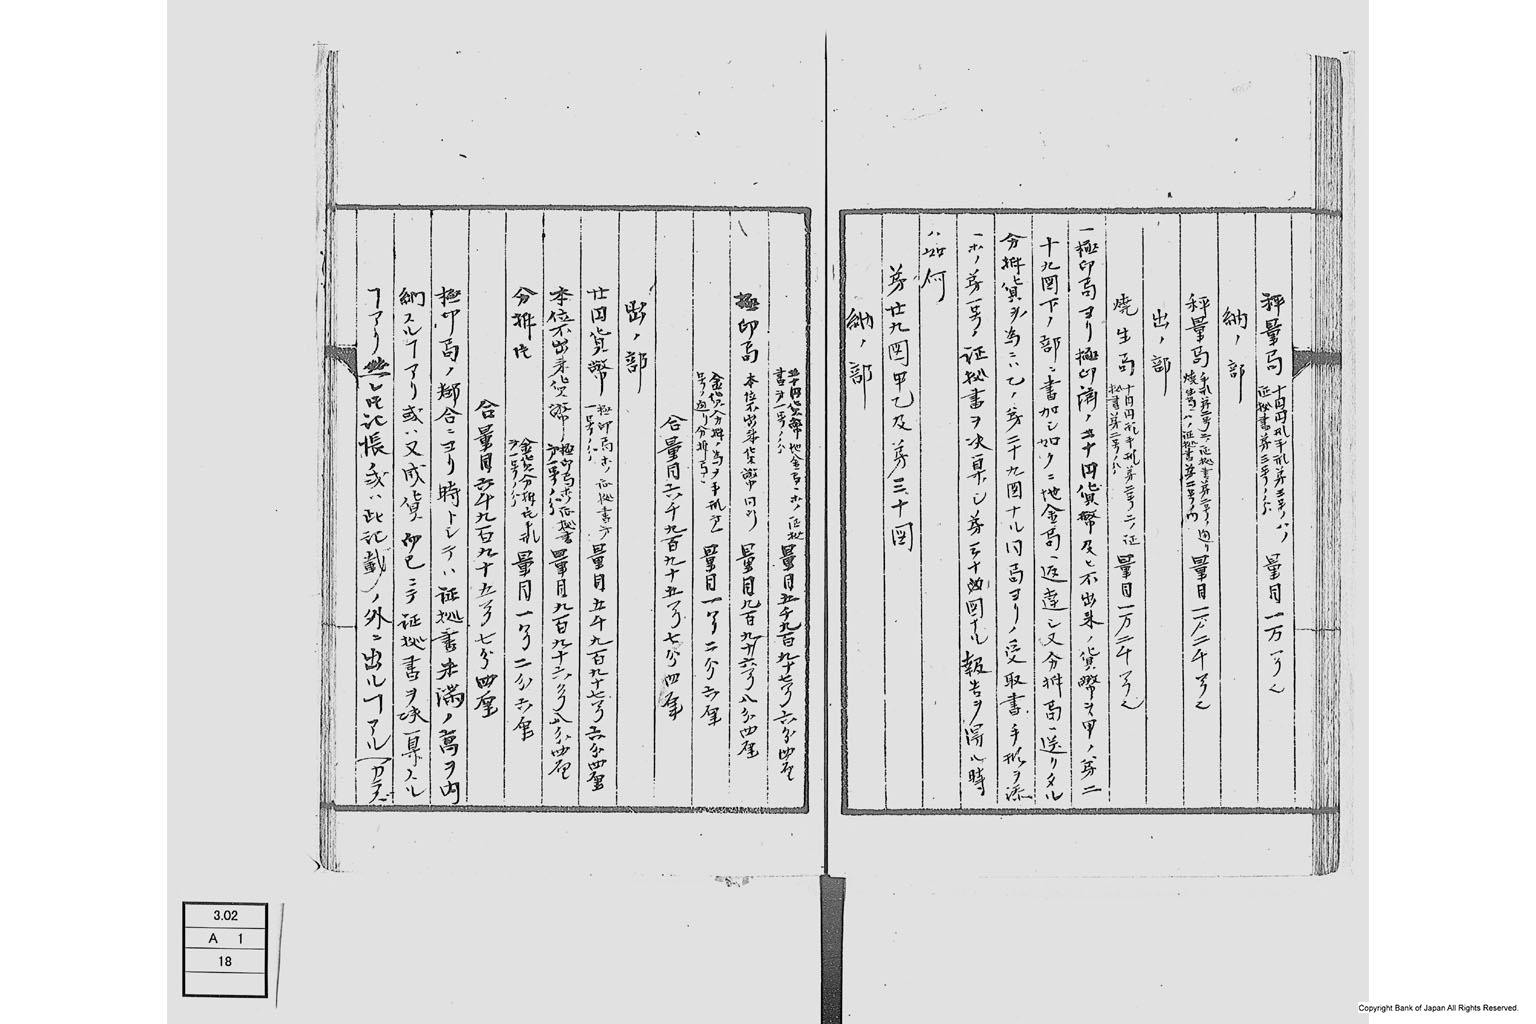 秤量局 十円円形手形第三号ノ ハノ証拠書第三号ノ分 量目一万一〇〻
納ノ部
秤量局 証拠書第二号ノ 量目一万二千〇〻
出ノ部
焼生局 十円円形手形第三号ニノ証拠書第二号ノ分 量目一万二千〇〻
一極印局ヨリ極印済ノ二十円貨幣及ヒ不出来ノ貨幣ヲ甲ノ第二
十九図下ノ部ニ書加シ如クニ地金局ニ返達シ又分拆局ニ送リタル
分拆貨ヲ為ニハ乙ノ第二十九図ナル同局ヨリノ受取書手形ヲ添
ヘホノ第一号ノ証拠書ヲ決算シ第三十図ナル報告ヲ得ル時
ハ如何
第廿九図甲乙及第三十図
納ノ部
二十円貨幣地金局ニホノ証拠書第一号ノ分 量目五千九百九十七〇六分四厘
極印局 本位不出来貨幣同断 量目九百九十六〇八分四厘
金貨分拆ノ為 量目一〇二分六厘
合量目六千九百九十五〇七分四厘
出ノ部
廿円貨幣 極印局ホノ証拠書第一号ノ分 量目五千九百九十七〇六分四厘
本位不出来貨幣 極印局ホノ証拠書第一号ノ分 量目九百九十六〇八分四厘
分拆片 金貨分拆片手形第一号ノ分 量目一〇二分六厘
合量目六千九百九十五〇七分四厘
極印局ノ都合ニヨリ時トシテハ証拠書未満ノ高ヲ内
納スルヿアリ或ハ又成貨而已ニテ証拠書ヲ決算スル
ヿアリ然レ𪜈記帳式ハ此記載ノ外ニ出ルヿアルヘカラズ
3.02
A 1
18
Copyright Bank of Japan All Rights Reserved.